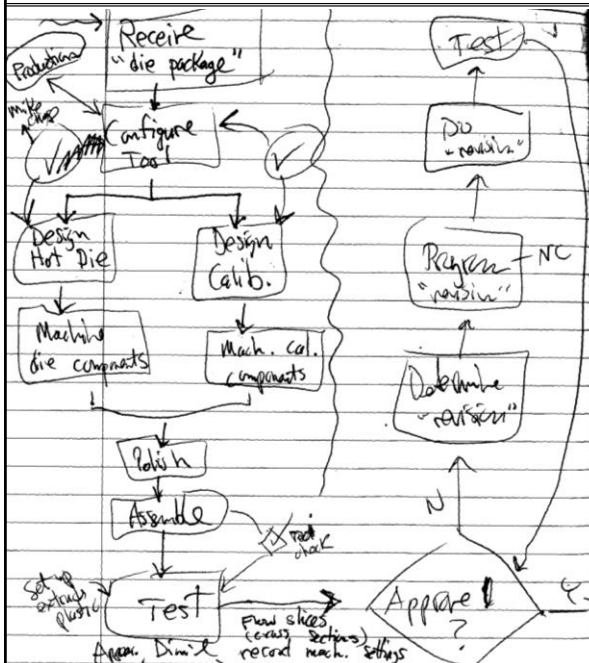 Receive
"die package"
Production
Mike
Configure
Tool
Design
Hot Die
Design
Calib.
Machine
die components
Mach. cal.
components
Polish
Assemble
check
Set up
extrude
plastic
Test
Flow slices
(cross sections)
record mach. settings
Approve
?
Y
N
Determine
"revision"
Program
"revisin"
NC
Do
"revisin"
Test